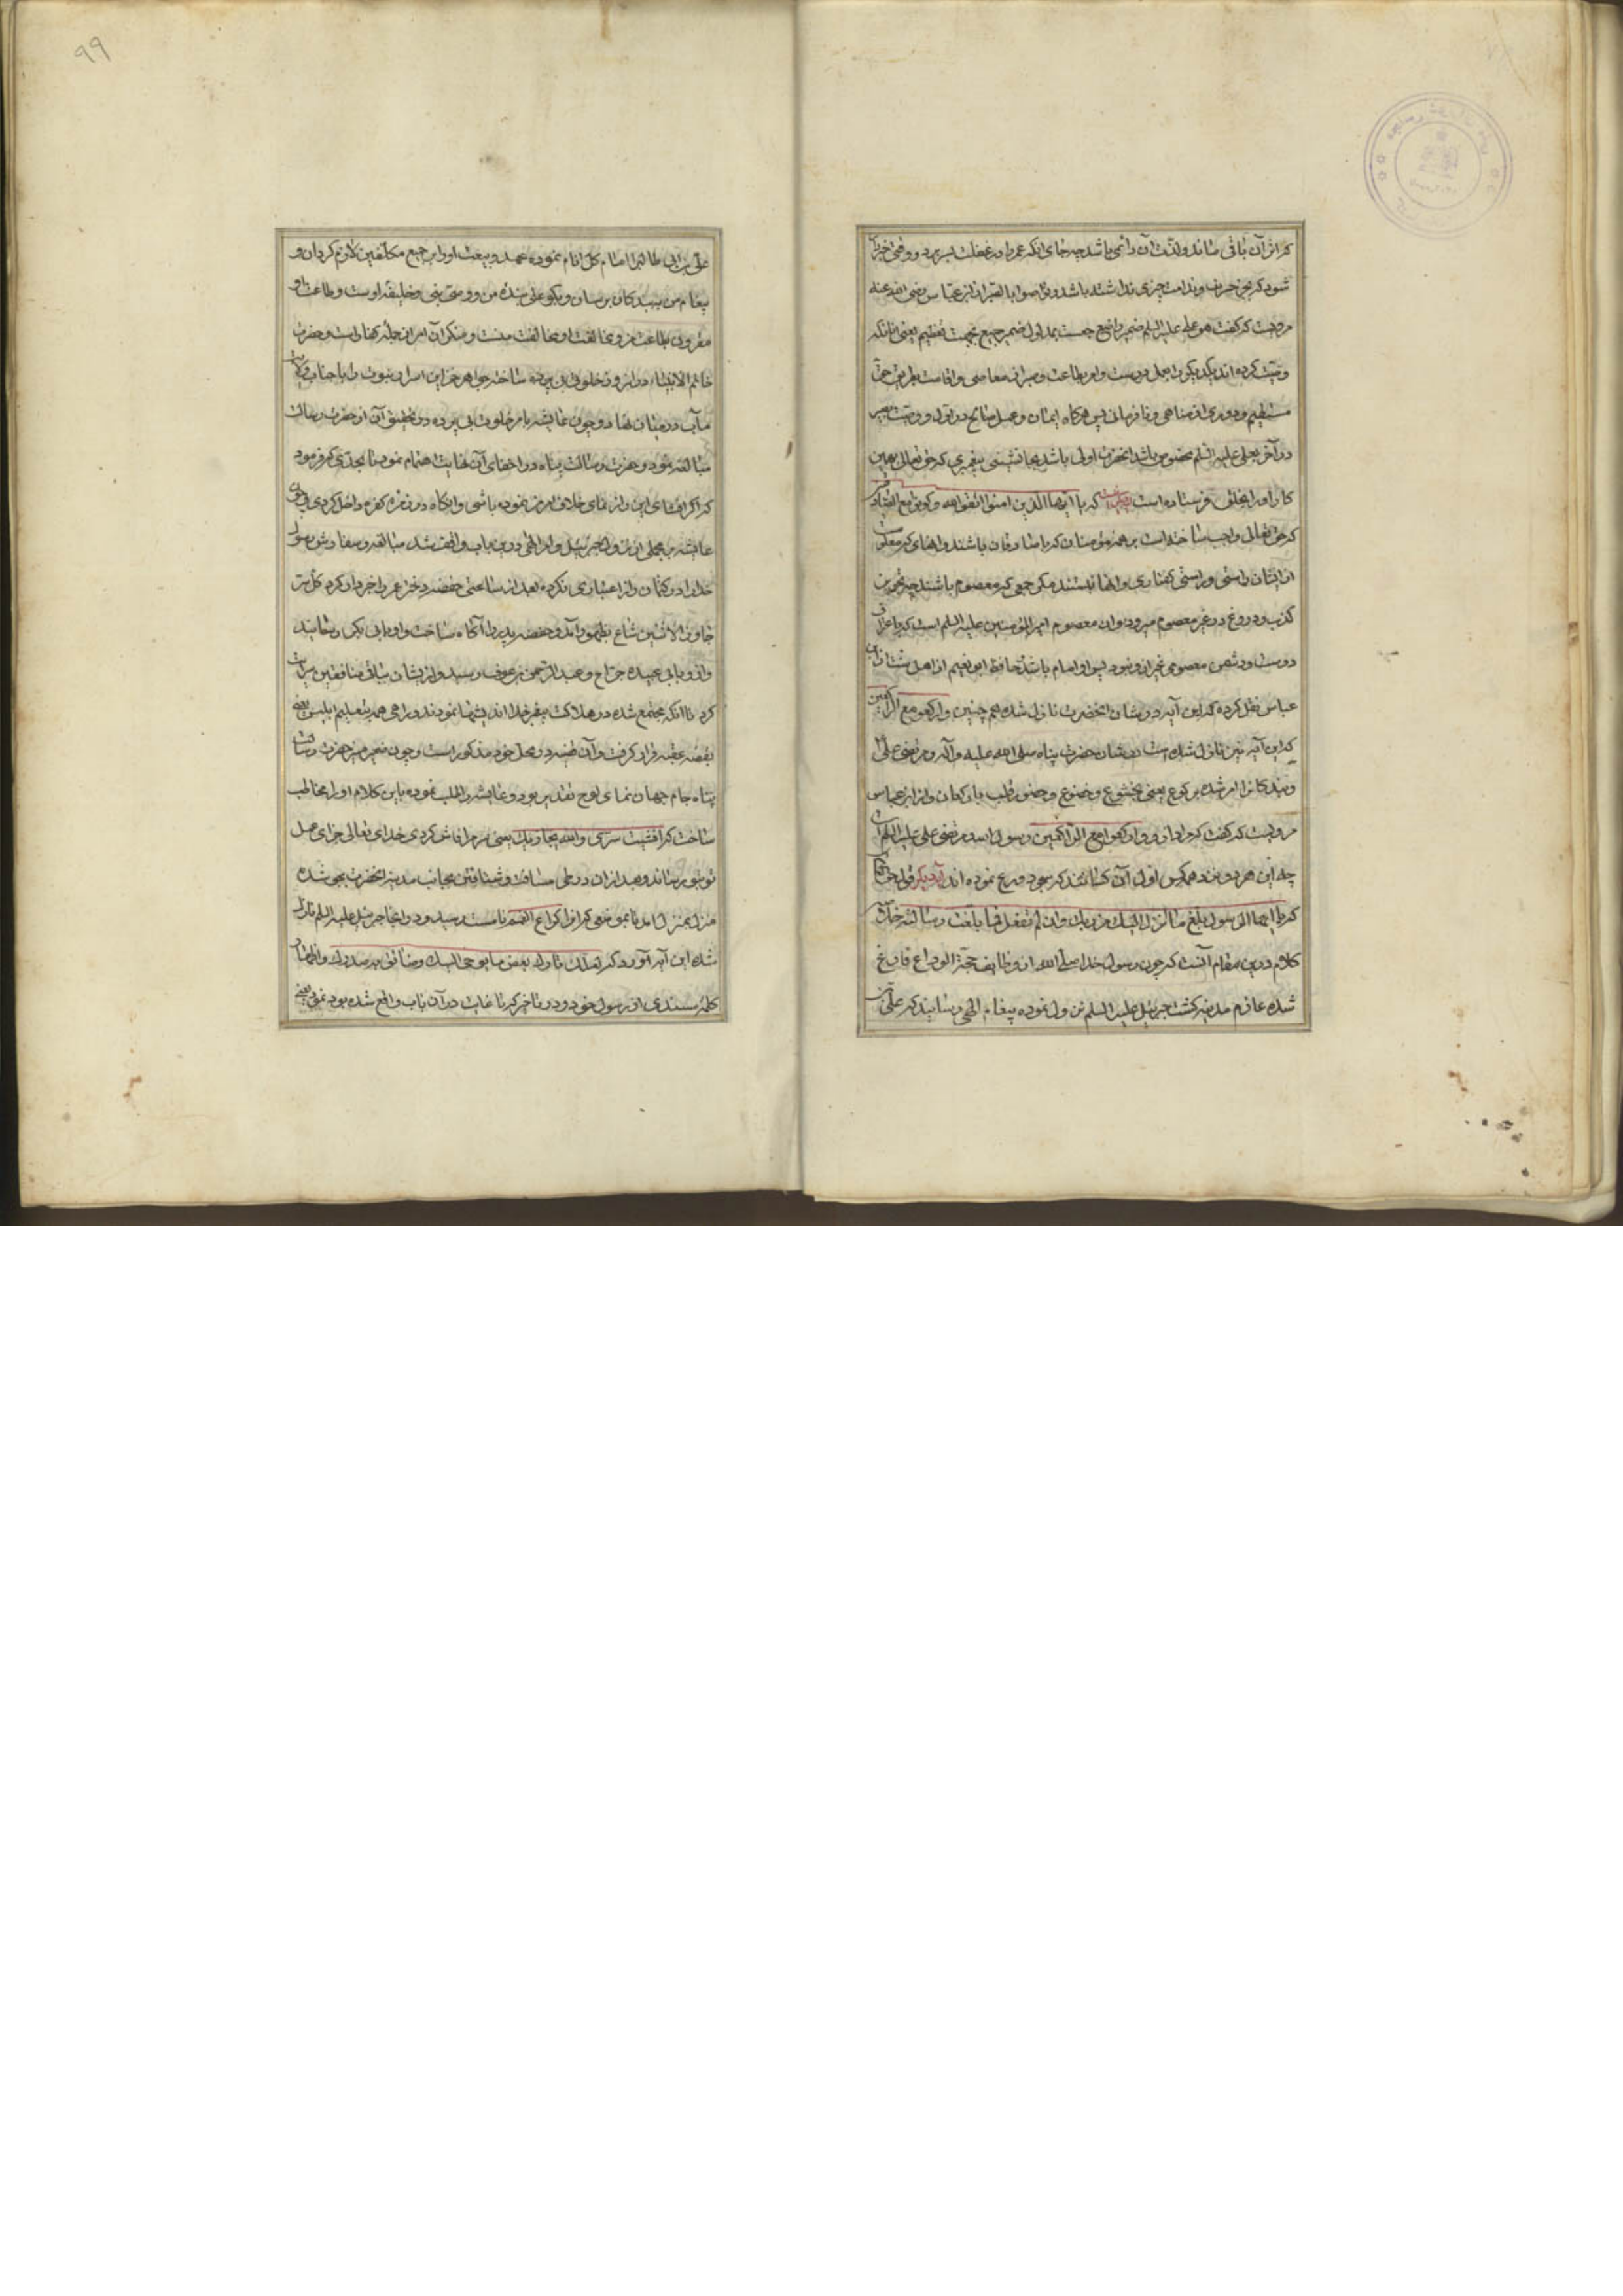 که اثر آن باقی ماند و لذت آن دائمی باشد چه جای آنکه عمر را در غفلت بسر برد و وقتی خبردار
شود که بجز حسرت و ندامت چیزی نداشته باشد و تواصوا بالصبر از ابن عباس رضی الله عنه
مرویست که گفت هو علی علیه السلم ضمیر واضع جمعست بمدلول ضمیر جمع بجهت تعظیم یعنی آنانکه
وصیت کرده اند یکدیگر را بعمل درست و امر بطاعت و صبر از معاصی و اقامت بطریق حق
مستقیم و دوری از مناهی و نافرمانی پس هرگاه ایمان و عمل صالح در اول و وصیت بصبر
در آخر بعلی علیه السلم مخصوص باشد آنحضرت اولی باشد بجانشینی پیغمبری که حق تعالی بهمین
کار او را بخلق فرستاده است که یا ایها الذین امنوا اتقوا الله وکونوا مع الصادقین
که حق تعالی واجب ساخته است بر همه مؤمنان که با صادقان باشند و آنهای که معلومست
از ایشان راستی و راستی گفتاری و آنها نیستند مگر جمعی که معصوم باشند چه تجویز
کذب و دروغ در غیر معصوم میرود و آن معصوم امیر المؤمنین علیه السلم است که باعتراف
دوست و دشمن معصومی غیر از و نبود پس او امام باشد حافظ ابو نعیم از اهل سنت از ابن
عباس نقل کرده که این آیه در شان آنحضرت نازل شده هم چنین وارکعوا مع الراکعین
که این آیه نیز نازل شده است در شان حضرت پناه صلی الله علیه وآله و مرتضی علی
و بندگان را امر شده برکوع یعنی بخشوع و خضوع و حضور قلب با رکعان و از ابن عباس
مرویست که گفت که مراد از وارکعوا مع الراکعین رسول الله و مرتضی علی علیه السلم است
چه این هر دو بزرگ همه کس اول آن کسانند که سجود و رکوع نموده اند آیه دیگر قول حق تعالی
که یا ایها الرسول بلغ ما انزل الیک من ربک وان لم تفعل فما بلغت رسالته خلاصه
کلام درین مقام آنست که چون رسول خدا صلی الله از وظایف حجة الوداع فارغ
شده عازم مدینه گشت جبرئیل علیه السلم نزول نموده پیغام الهی رسانید که علی بن
علی بن ابی طالب را امام کل انام نموده عهد و بیعت او را بر جمیع مکلفین لازم گردان و
پیغام من ببندگان برسان و بگو علی بنده من و وصی نبی و خلیفه اوست و طاعت او
مقرون بطاعت من و مخالفت او مخالفت منست و منکر آن امر از جمله کفار است و حضرت
خاتم الانبیاء در آن روز خلوتی بی پرده ساخته جواهر خزاین اسرار نبوت را با جناب ولایت
مآب در میان نهاد و چون عایشه بامر خلوت پی برده در تحقیق آن از حضرت رسالت
مبالغه نمود و حضرت رسالت پناه در اخفای آن نهایت اهتمام نمود تا بحدی که فرمود
که اگر افشای این راز نمای خلاف امر من نموده باشی و آنگاه در زمره کفره داخل گردی
عایشه مجملی از نزول جبرئیل و امر الهی درین باب واقف شد مبالغه و سفارش رسول
خدا را در کتمان راز اعتباری نکرده بعد از ساعتی حفصه دختر عمر را خبردار کرد کل سر
جاوز الاثنین شاع بظهور آمد و حفصه پدر را آگاه ساخت و او با بی بکر رسانید
و از و بابی عبیده جراح و عبد الرحمن بن عوف رسید و از ایشان بباقی منافقین سرایت
کرد تا آنکه مجتمع شده در هلاکت پیغمبر خدا اندیشها نمودند و راهی همه بتعلیم ابلیس لعین
بقصه عقبه قرار گرفت و آن قضیه در محل خود مذکور است و چون ضمیر منیر حضرت رسالت
پناه جام جهان نمای لوح تقدیر بود و عایشه را طلب نموده باین کلام او را مخاطب
ساخت که افشیت سری والله یجازیک یعنی سر مرا فاش کردی خدای تعالی جزای عمل
تو بتو رساند و بعد از آن در طی مسافت و شتافتن بجانب مدینه آنحضرت بجد شده
منزل بمنزل آمد تا بموضعی که آنرا کراع الغمیم نامست رسید و در آنجا جبرئیل علیه السلم نازل
شده این آیه آورد که لعلک تارک بعض ما یوحی الیک وضائق به صدرک و اظهار
کله مندی از رسول خود در تاخیر که تا غایت در آن باب واقع شده بود نمود یعنی
۹۹